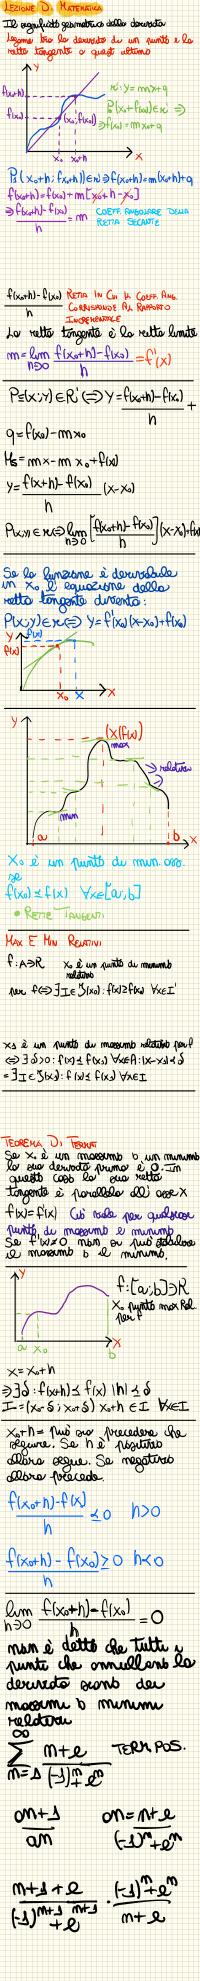 LEZIONE DI MATEMATICA
Il significato geometrico della derivata
Legame tra la derivata di un punto e la
retta tangente a quest'ultimo
Y
f(x₀+h)
f(x₀)
x₀ x₀+h X
r: y = mx+q
P₀(x₀;f(x₀)) ∈ r ⇒
⇒ f(x₀) = mx₀+q
P₁(x₀+h; f(x₀+h)) ∈ r ⇒ f(x₀+h) = m(x₀+h)+q
f(x₀+h) = f(x₀) + m[x₀+h-x₀]
⇒ f(x₀+h)-f(x₀) / h = m COEFF. ANGOLARE DELLA
RETTA SECANTE
f(x₀+h)-f(x₀) / h RETTA IN CUI IL COEFF. ANG.
CORRISPONDE AL RAPPORTO
INCREMENTALE
La retta tangente è la retta limite
m = lim h→0 f(x₀+h)-f(x₀) / h = f'(x)
P≡(x;y) ∈ R' ⇔ Y = f(x₀+h)-f(x₀) / h +
q = f(x₀) - mx₀
= mx - mx₀ + f(x)
y = f(x+h)-f(x₀) / h (x-x₀)
P(x;y) ∈ r ⇔ lim h→0 [f(x₀+h)-f(x₀) / h] (x-x₀)+f(x
Se la funzione è derivabile
in x₀ l'equazione della
retta tangente diventa:
P(x;y) ∈ r ⇔ Y = f'(x₀)(x-x₀)+f(x₀)
Y f(x)
f(x₀)
x₀ x X
Y
(x;f(x))
max
relativi
min
a b X
x₀ è un punto di min. ass.
se
f(x₀) ≤ f(x) ∀x∈[a;b]
• RETTE TANGENTI
MAX E MIN RELATIVI
f: A→R x₀ è un punto di minimo
relativo
per f ⇔ ∃ I ∈ ζ(x₀): f(x) ≥ f(x₀) ∀x∈I'
x₁ è un punto di massimo relativo per f
⇔ ∃ δ>0: f(x) ≤ f(x₁) ∀x∈A: |x-x₁| < δ
= ∃ I ∈ ζ(x₁): f(x) ≤ f(x₁) ∀x∈I
TEOREMA DI FERMAT
Se x₀ è un massimo o un minimo
la sua derivata prima è 0. In
questo caso la sua retta
tangente è parallela all'asse X
f(x) = f'(x) Ciò vale per qualsiasi
punto di massimo e minimo
Se f'(x) = 0 non si può stabilire
il massimo o il minimo.
Y
a x₀ b X
f: [a;b]→R
X₀ punto max rel.
per f
x = x₀+h
⇒ ∃ δ: f(x₀+h) ≤ f(x₀) |h| < δ
I = (x₀-δ; x₀+δ) x₀+h ∈ I ∀x∈I
x₀+h = può sia precedere che
seguire. Se h è positivo
allora segue. Se negativo
allora precede.
f(x₀+h)-f(x) / h ≤ 0 h>0
f(x₀+h)-f(x₀) / h ≥ 0 h<0
lim h→0 f(x₀+h)-f(x₀) / h = 0
non è detto che tutti i
punti che annullano la
derivata siano dei
massimi o minimi
relativi
∞
∑ n+e / (-1)ⁿ+eⁿ TERM. POS.
n=1
an+1 / an an = n+e / (-1)ⁿ+eⁿ
n+1+e / (-1)ⁿ⁺¹+eⁿ⁺¹ · (-1)ⁿ+eⁿ / n+e